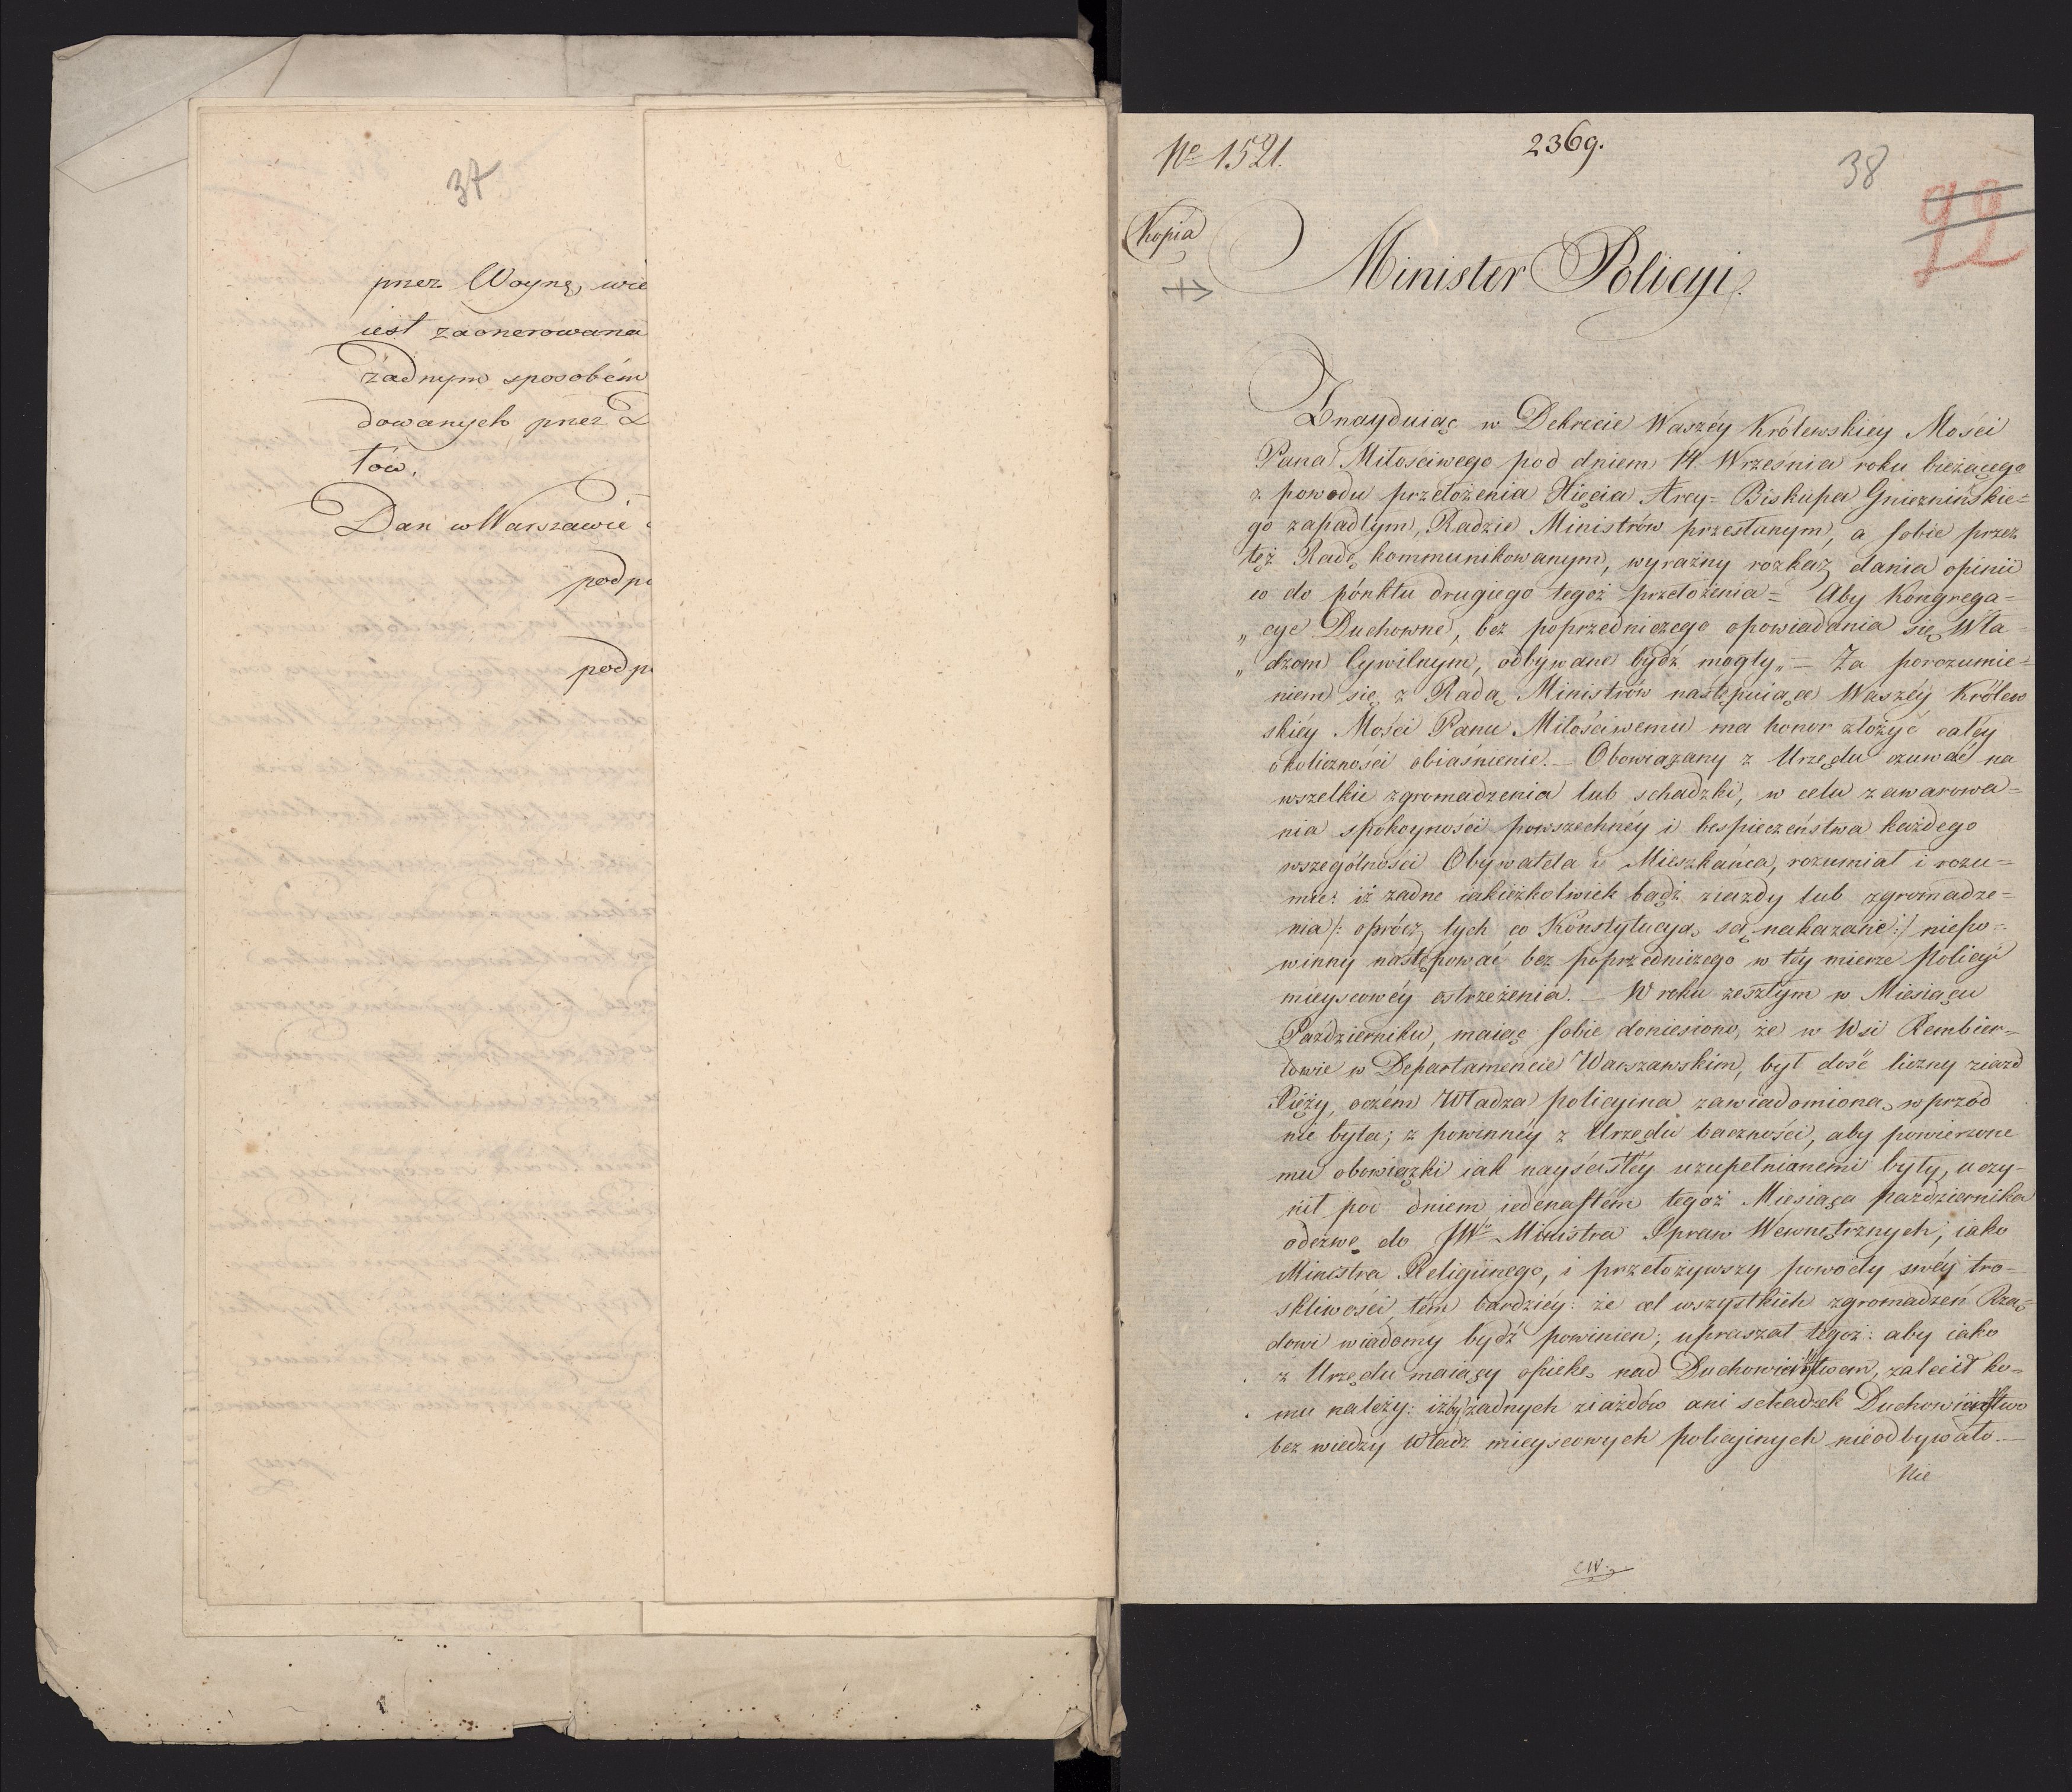 37
przez Woynę, wie
iest zaonerowana
żadnym sposobem
dowanych przez
tów.
Dan w Warszawie
podpi
podpi
No 1521.
2369.
38
22
Kopia
Minister Policyi.
Znayduiąc w Dekrecie Waszéy Królewskiey Mości
Pana Miłościwego pod dniem 14. Września roku bieżącego
z powodu przełożenia Xięcia Arcy= Biskupa Gnieznińskie=
go zapadłym, Radzie Ministrów przesłanym, a sobie przez
też Radę kommunikowanym, wyraźny rozkaz dania opinii
co do pónktu drugiego tegoż przełożenia = Aby Kongrega=
„ cye Duchowne, bez poprzedniczego opowiadania się Wła=
„ dzom Cywilnym, odbywane bydź mogły„ = Za porozumie=
niem się z Radą Ministrów następuiące Waszéy Królew
skiéy Mości Panu Miłościwemu ma honor złożyć całéy
okoliczności obiaśnienie. — Obowiązany z Urzędu czuwać na
wszelkie zgromadzenia lub schadzki, w celu zawarowa=
nia spokoyności powszechnéy i bespieczeństwa każdego
wszególności Obywatela i Mieszkańca, rozumiał i rozu=
mie: iż żadne iakieżkolwiek bądź ziazdy lub zgromadze=
nia /: oprócz tych co Konstytucyą są nakazane :/ niepo=
winny następować bez poprzedniczego w téy mierze Policyi
mieyscowéy ostrzeżenia. — W roku zeszłym w Miesiącu
Październiku, maiąc sobie doniesiono, że w Wsi Rembier=
towie w Departamencie Warszawskim, był dość liczny ziazd
Xięży, oczém Władza policyina zawiadomioną wprzód
nie była; z powinney z Urzędu baczności, aby powierzone
mu obowiązki iak nayściśléy uzupełnianemi były, uczy=
nił pod dniem iedenastém tegoż Miesiąca października
odezwę do JWo Ministra Spraw Wewnętrznych, iako
Ministra Religiinego, i przełożywszy powody swéy tro=
skliwości, tém bardziéy: że cel wszystkich zgromadzeń Rzą=
dowi wiadomy bydź powinien; upraszał tegoż: aby iako
z Urzędu maiący opiekę nad Duchowieństwem, zalecił ko=
mu należy: iżby żadnych ziazdów ani schadzek Duchowieństwo
bez wiedzy Władz mieyscowych policyinych nieodbywało. —
Nie